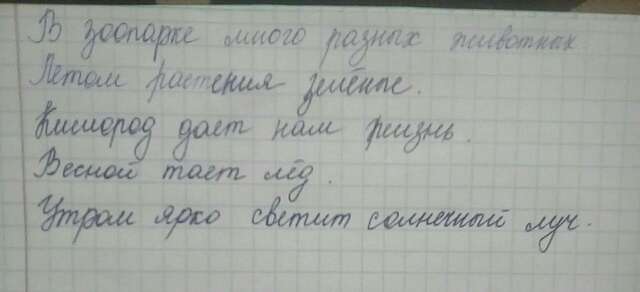 В зоопарке много разных животных
Летом растения зелёные.
Кислород дает нам жизнь.
Весной тает лёд.
Утром ярко светит солнечный луч.